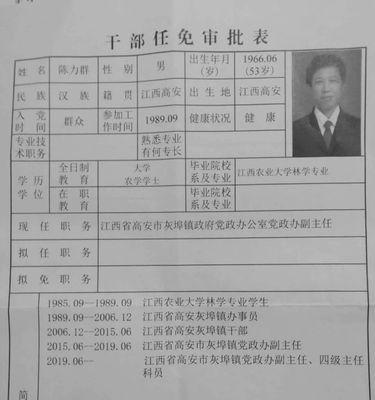 干部任免审批表
姓名 陈力群 性别 男 出生年月（岁） 1966.06（53岁）
民族 汉族 籍贯 江西高安 出生地 江西高安
入党时间 群众 参加工作时间 1989.09 健康状况 健康
专业技术职务 熟悉专业有何专长
学历学位 全日制教育 大学农学学士 毕业院校系及专业 江西农业大学林学专业
在职教育 毕业院校系及专业
现任职务 江西省高安市灰埠镇政府党政办公室党政办副主任
拟任职务
拟免职务
1985.09—1989.09 江西农业大学林学专业学生
1989.09—2006.12 江西省高安灰埠镇办事员
2006.12—2015.06 江西省高安灰埠镇干部
2015.06—2019.06 江西省高安市灰埠镇党政办副主任
2019.06— 江西省高安市灰埠镇党政办副主任、四级主任
科员
简